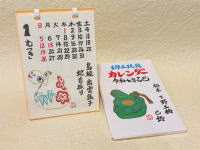 日 月 火 水 木 金 土
1 2 3 4
5 6 7 8 9 10 11
12 13 14 15 16 17 18
19 20 21 22 23 24 25
26 27 28 29 30 31
1
むつき
島根 出雲張子
蛇首振り
郷土玩具
カレンダー
令和七年乙巳